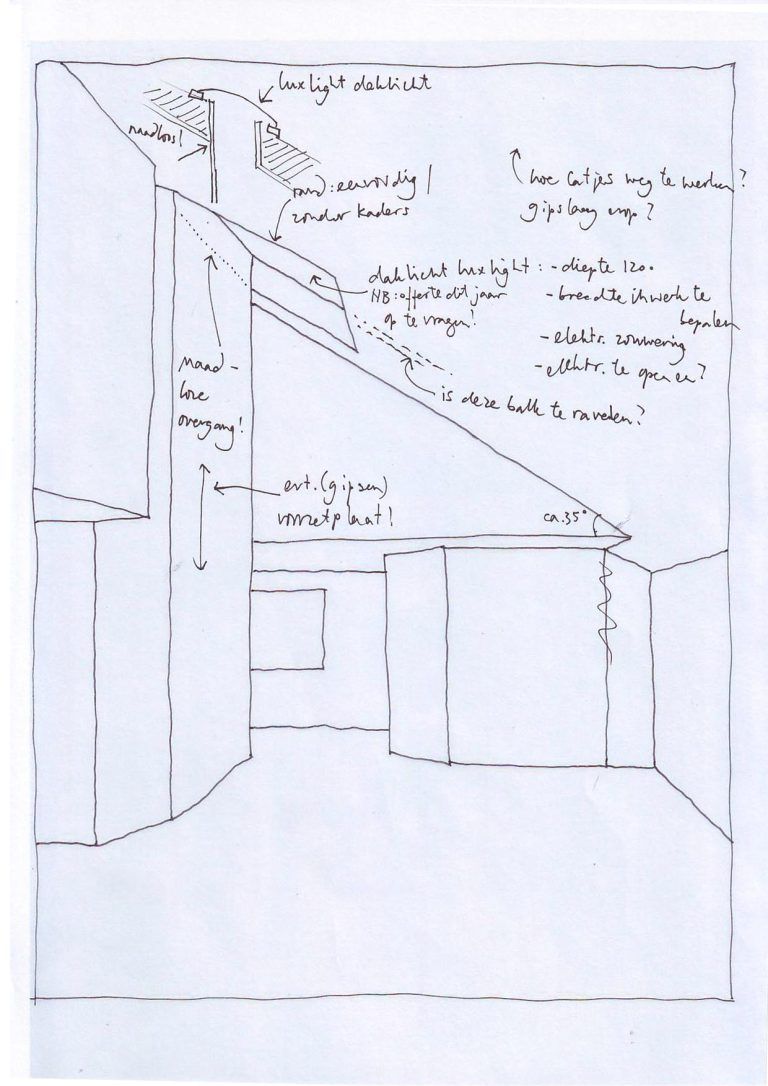 luxlight daklicht
naadloos!
rand: eenvoudig /
zonder kaders
hoe latjes weg te werken?
gipslaag erop?
daklicht luxlight: - diepte 120.
NB: offerte dit jaar
op te vragen!
- breedte ihwerk te
bepalen
- elektr. zonwering
- elektr. te openen?
is deze balk te ravelen?
naad-
loze
overgang!
evt. (gipsen)
voorzetplaat!
ca. 35°